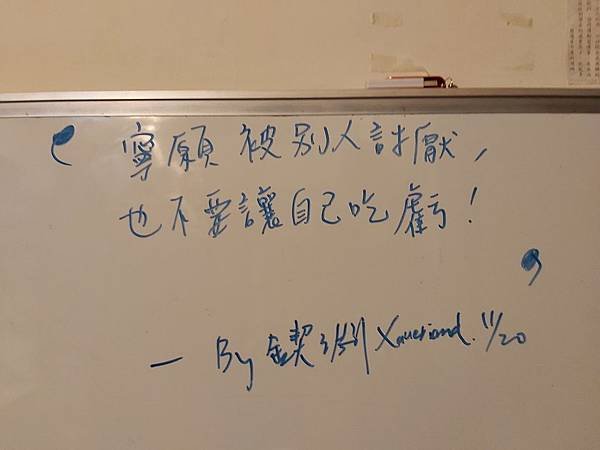 寧願被別人討厭，
也不要讓自己吃虧！
— By 鍥 Xaueriand. 11/20